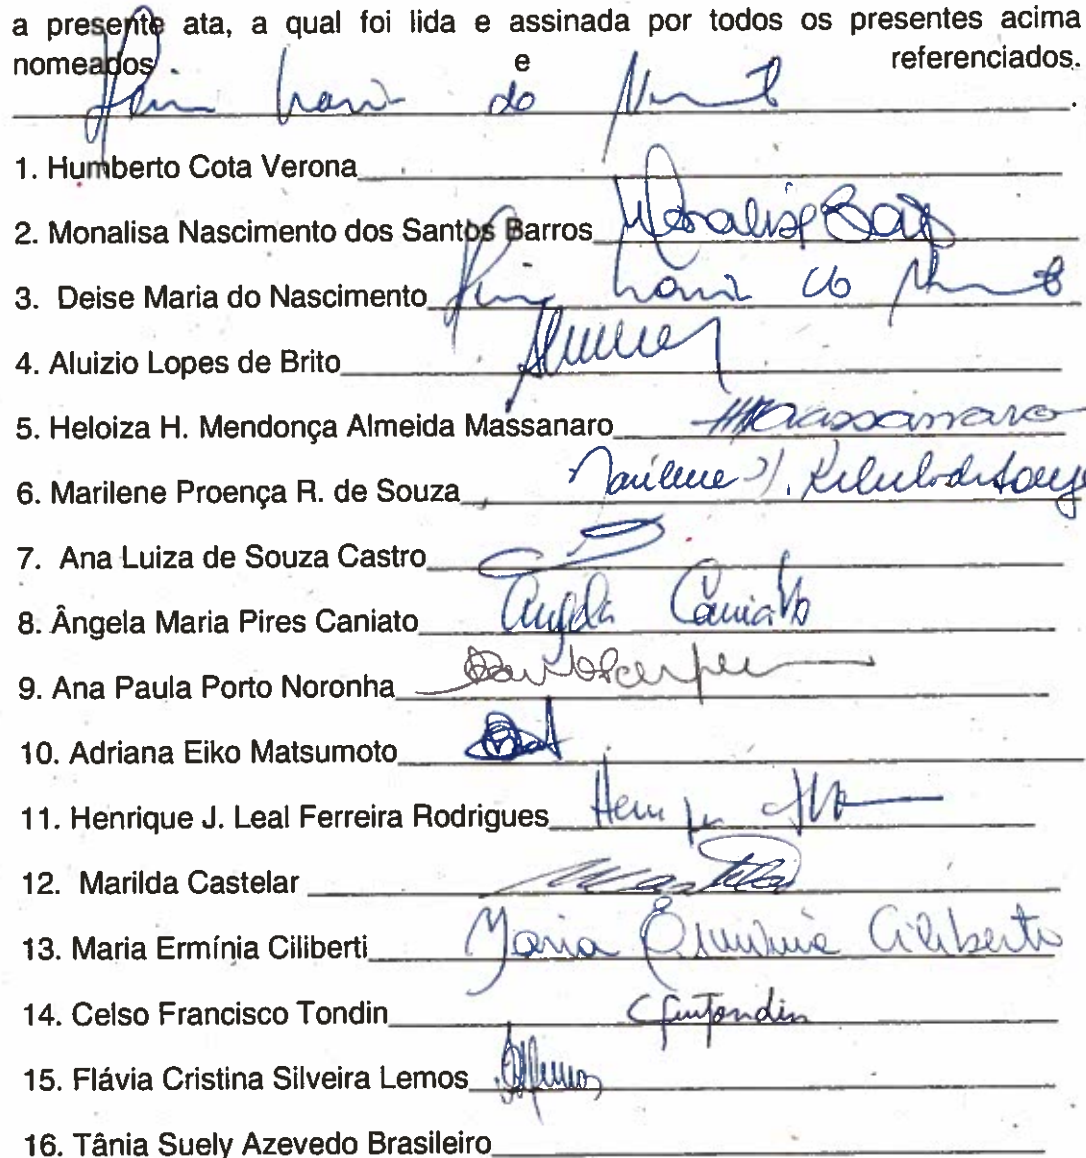 a presente ata, a qual foi lida e assinada por todos os presentes acima
nomeados e referenciados.
Maria do
1. Humberto Cota Verona
2. Monalisa Nascimento dos Santos Barros Monalisa Barros
3. Deise Maria do Nascimento
4. Aluizio Lopes de Brito
5. Heloiza H. Mendonça Almeida Massanaro HMassanaro
6. Marilene Proença R. de Souza Marilene
7. Ana Luiza de Souza Castro
8. Ângela Maria Pires Caniato Angela Caniato
9. Ana Paula Porto Noronha
10. Adriana Eiko Matsumoto
11. Henrique J. Leal Ferreira Rodrigues
12. Marilda Castelar
13. Maria Ermínia Ciliberti Maria Ermínia Ciliberti
14. Celso Francisco Tondin
15. Flávia Cristina Silveira Lemos
16. Tânia Suely Azevedo Brasileiro